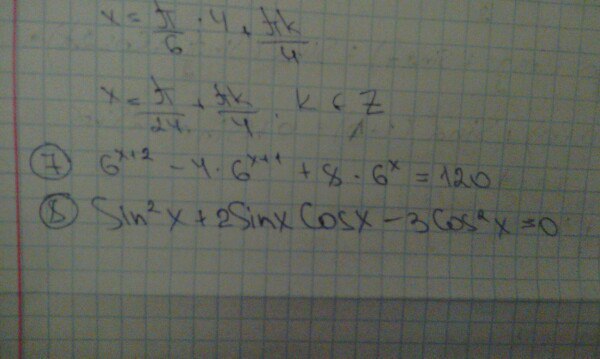 x = π/6 · 4 + πk/4
x = π/24 + πk/4. k ∈ Z
⑦ 6^{x+2} - 4 · 6^{x+1} + 8 · 6^x = 120
⑧ Sin²x + 2Sinx Cosx - 3Cos²x = 0